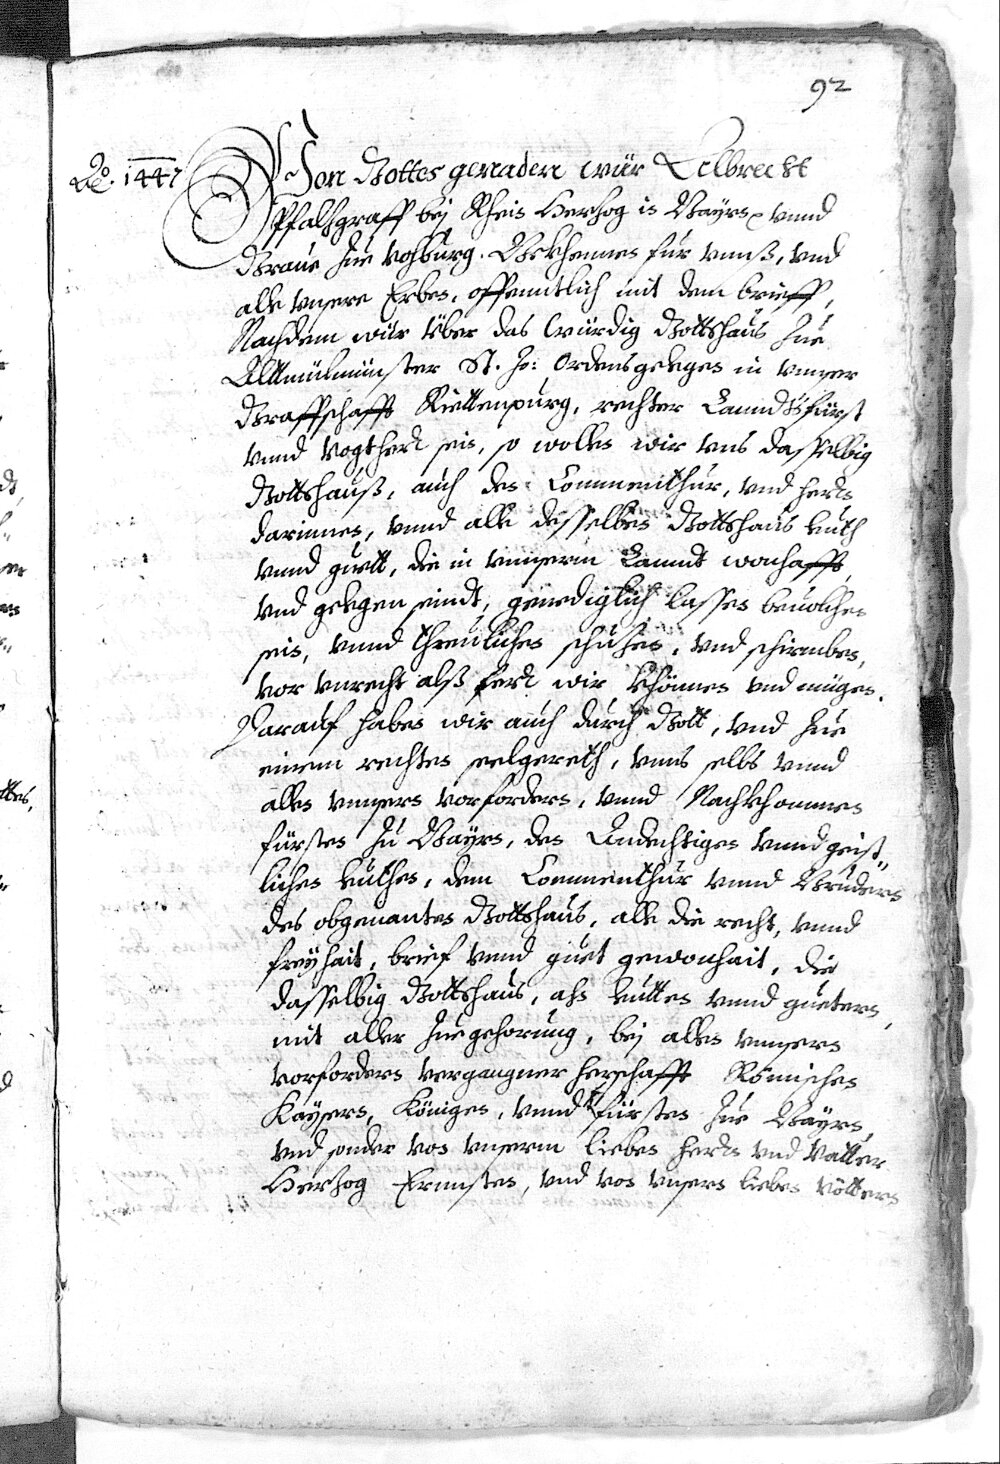 92
Ao. 1447
Von Gottes genaden wür Albrecht
Pfalzgraff bej Rhein Herzog in Bayrn vnnd
Graue zue Vohburg. Bekhennen für vnnß, vnd
alle vnsere Erben, offenntlich mit dem brieff,
Nachdem wür über das würdig Gottshaus zue
Altmülmünster St. Jo: Ordens gelegen in vnnser
Graffschafft Riettenpurg, rechter Lanndtsfürst
vnnd Vogtherr sein, so wollen wir vns dasselbig
Gottshauß, auch den Commenthur, vnd herrn
darinnen, vnnd alle desselben Gottshaus leuth
vnnd guett, die in vnnserm Lannd wonhafft,
vnd gelegen seindt, genediglich lassen beuolchen
sein, vnnd threulichen schüzen, vnd schirmben,
vor vnrecht alß ferr wir khönnen vnd mügen.
Darauf haben wir auch durch Gott, vnd zue
einem rechten seelgereth, vnns selbs vnnd
allen vnnsern vorfordern, vnnd Nachkhommen
fürsten zu Bayrn, den Andechtigen vnnd geist„
lichen leüthen, dem Commenthür vnnd Brüdern
des obgenanten Gottshaus, alle die recht, vnnd
freyhait, brief vnnd guet gewonhait, die
dasselbig Gottshaus, an leütten vnnd guetern,
mit aller zuegehorung, bej allen vnnsern
vorfordern vergangner herschafft Römischen
Kaysern, Königen, vnnd fürsten zue Bayrn,
vnd sonder von vnserm lieben herrn vnd Vatter
Herzog Ernnsten, vnd von vnsern lieben Vöttern